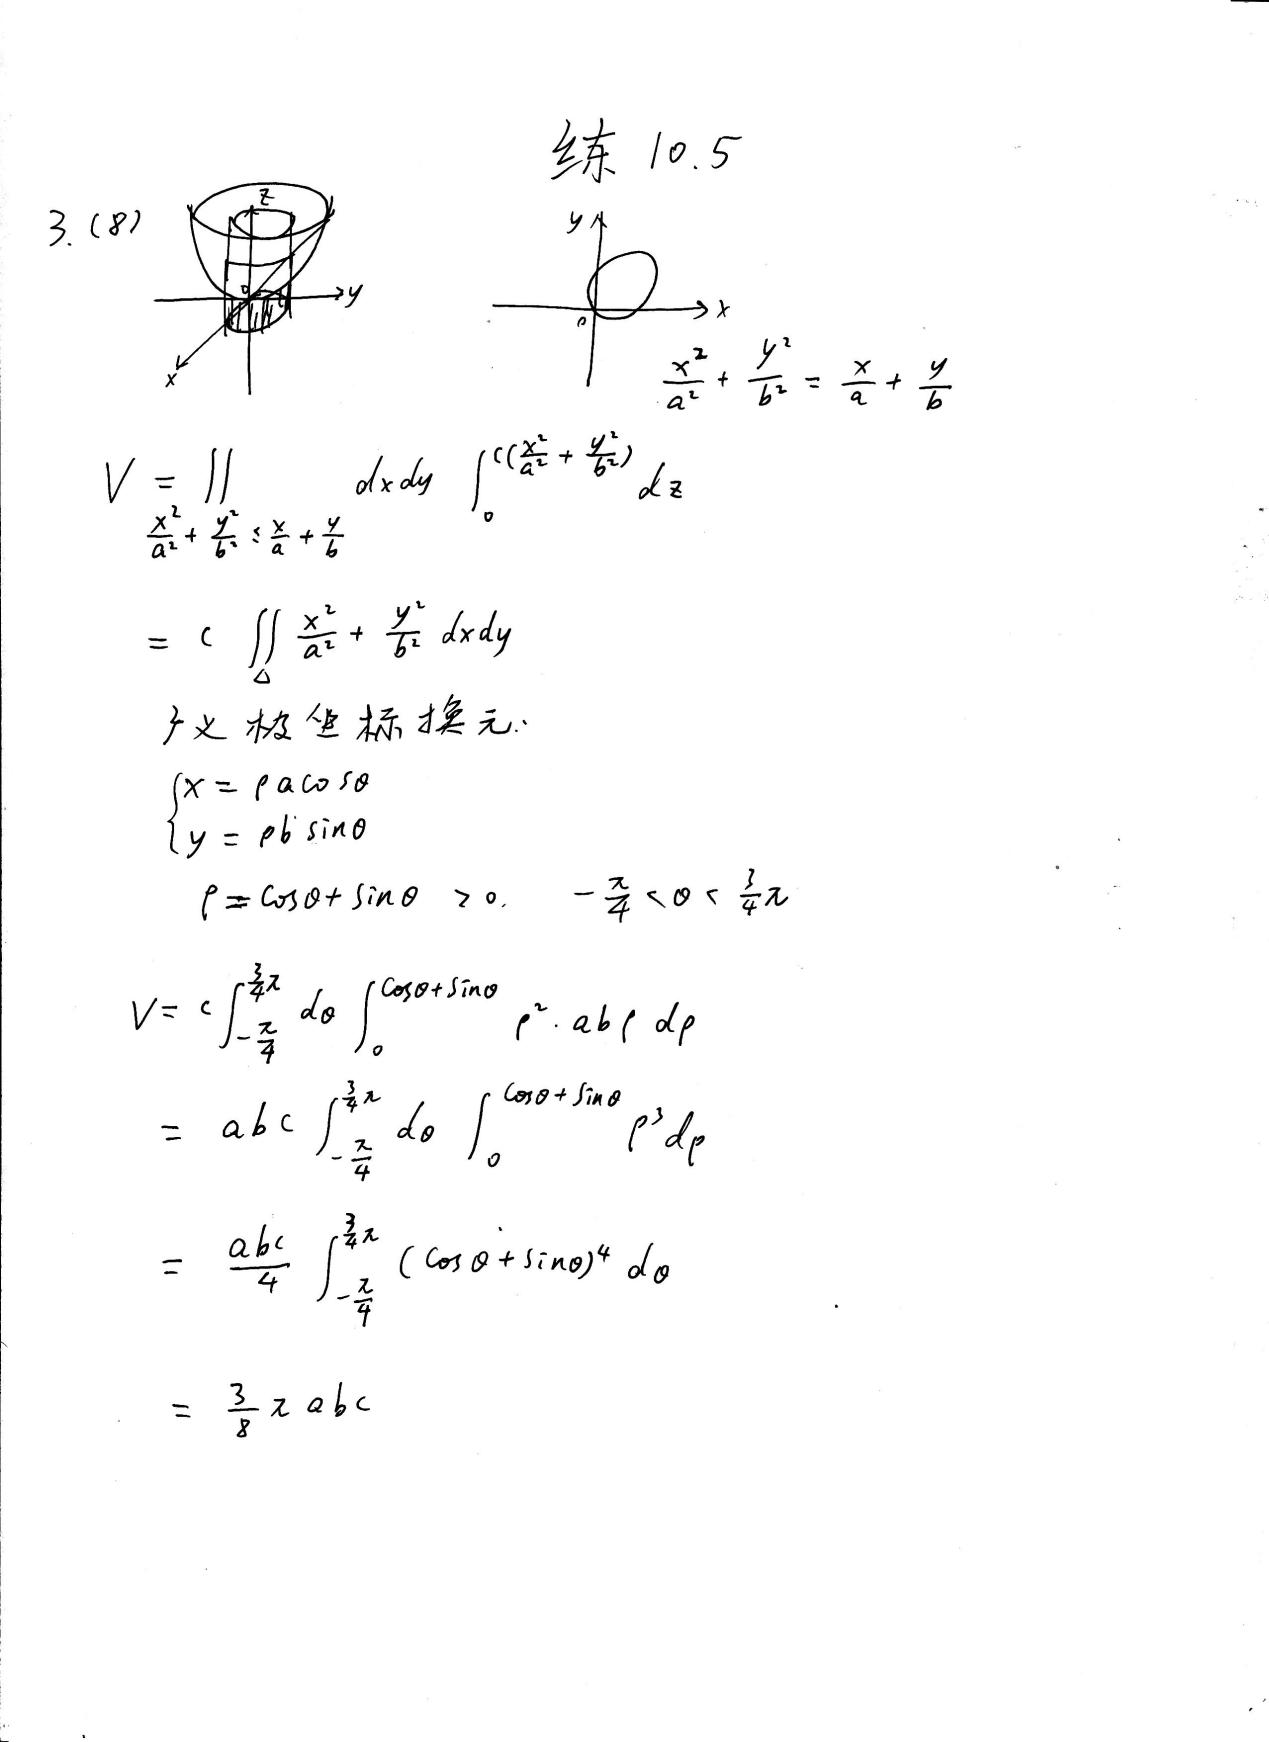 练 10.5
3. (8)
z
y
o
x
y
x
o
x²/a² + y²/b² = x/a + y/b
V = ∬_{x²/a² + y²/b² ≤ x/a + y/b} dxdy ∫_0^{c(x²/a² + y²/b²)} dz
= c ∬_Δ x²/a² + y²/b² dxdy
义极坐标换元.
{x = ρ a cosθ
y = ρ b sinθ
ρ = cosθ + sinθ > 0. -π/4 < θ < 3/4 π
V = c ∫_{-π/4}^{3/4 π} dθ ∫_0^{cosθ + sinθ} ρ² · abρ dρ
= abc ∫_{-π/4}^{3/4 π} dθ ∫_0^{cosθ + sinθ} ρ³ dρ
= abc/4 ∫_{-π/4}^{3/4 π} (cosθ + sinθ)⁴ dθ
= 3/8 π abc